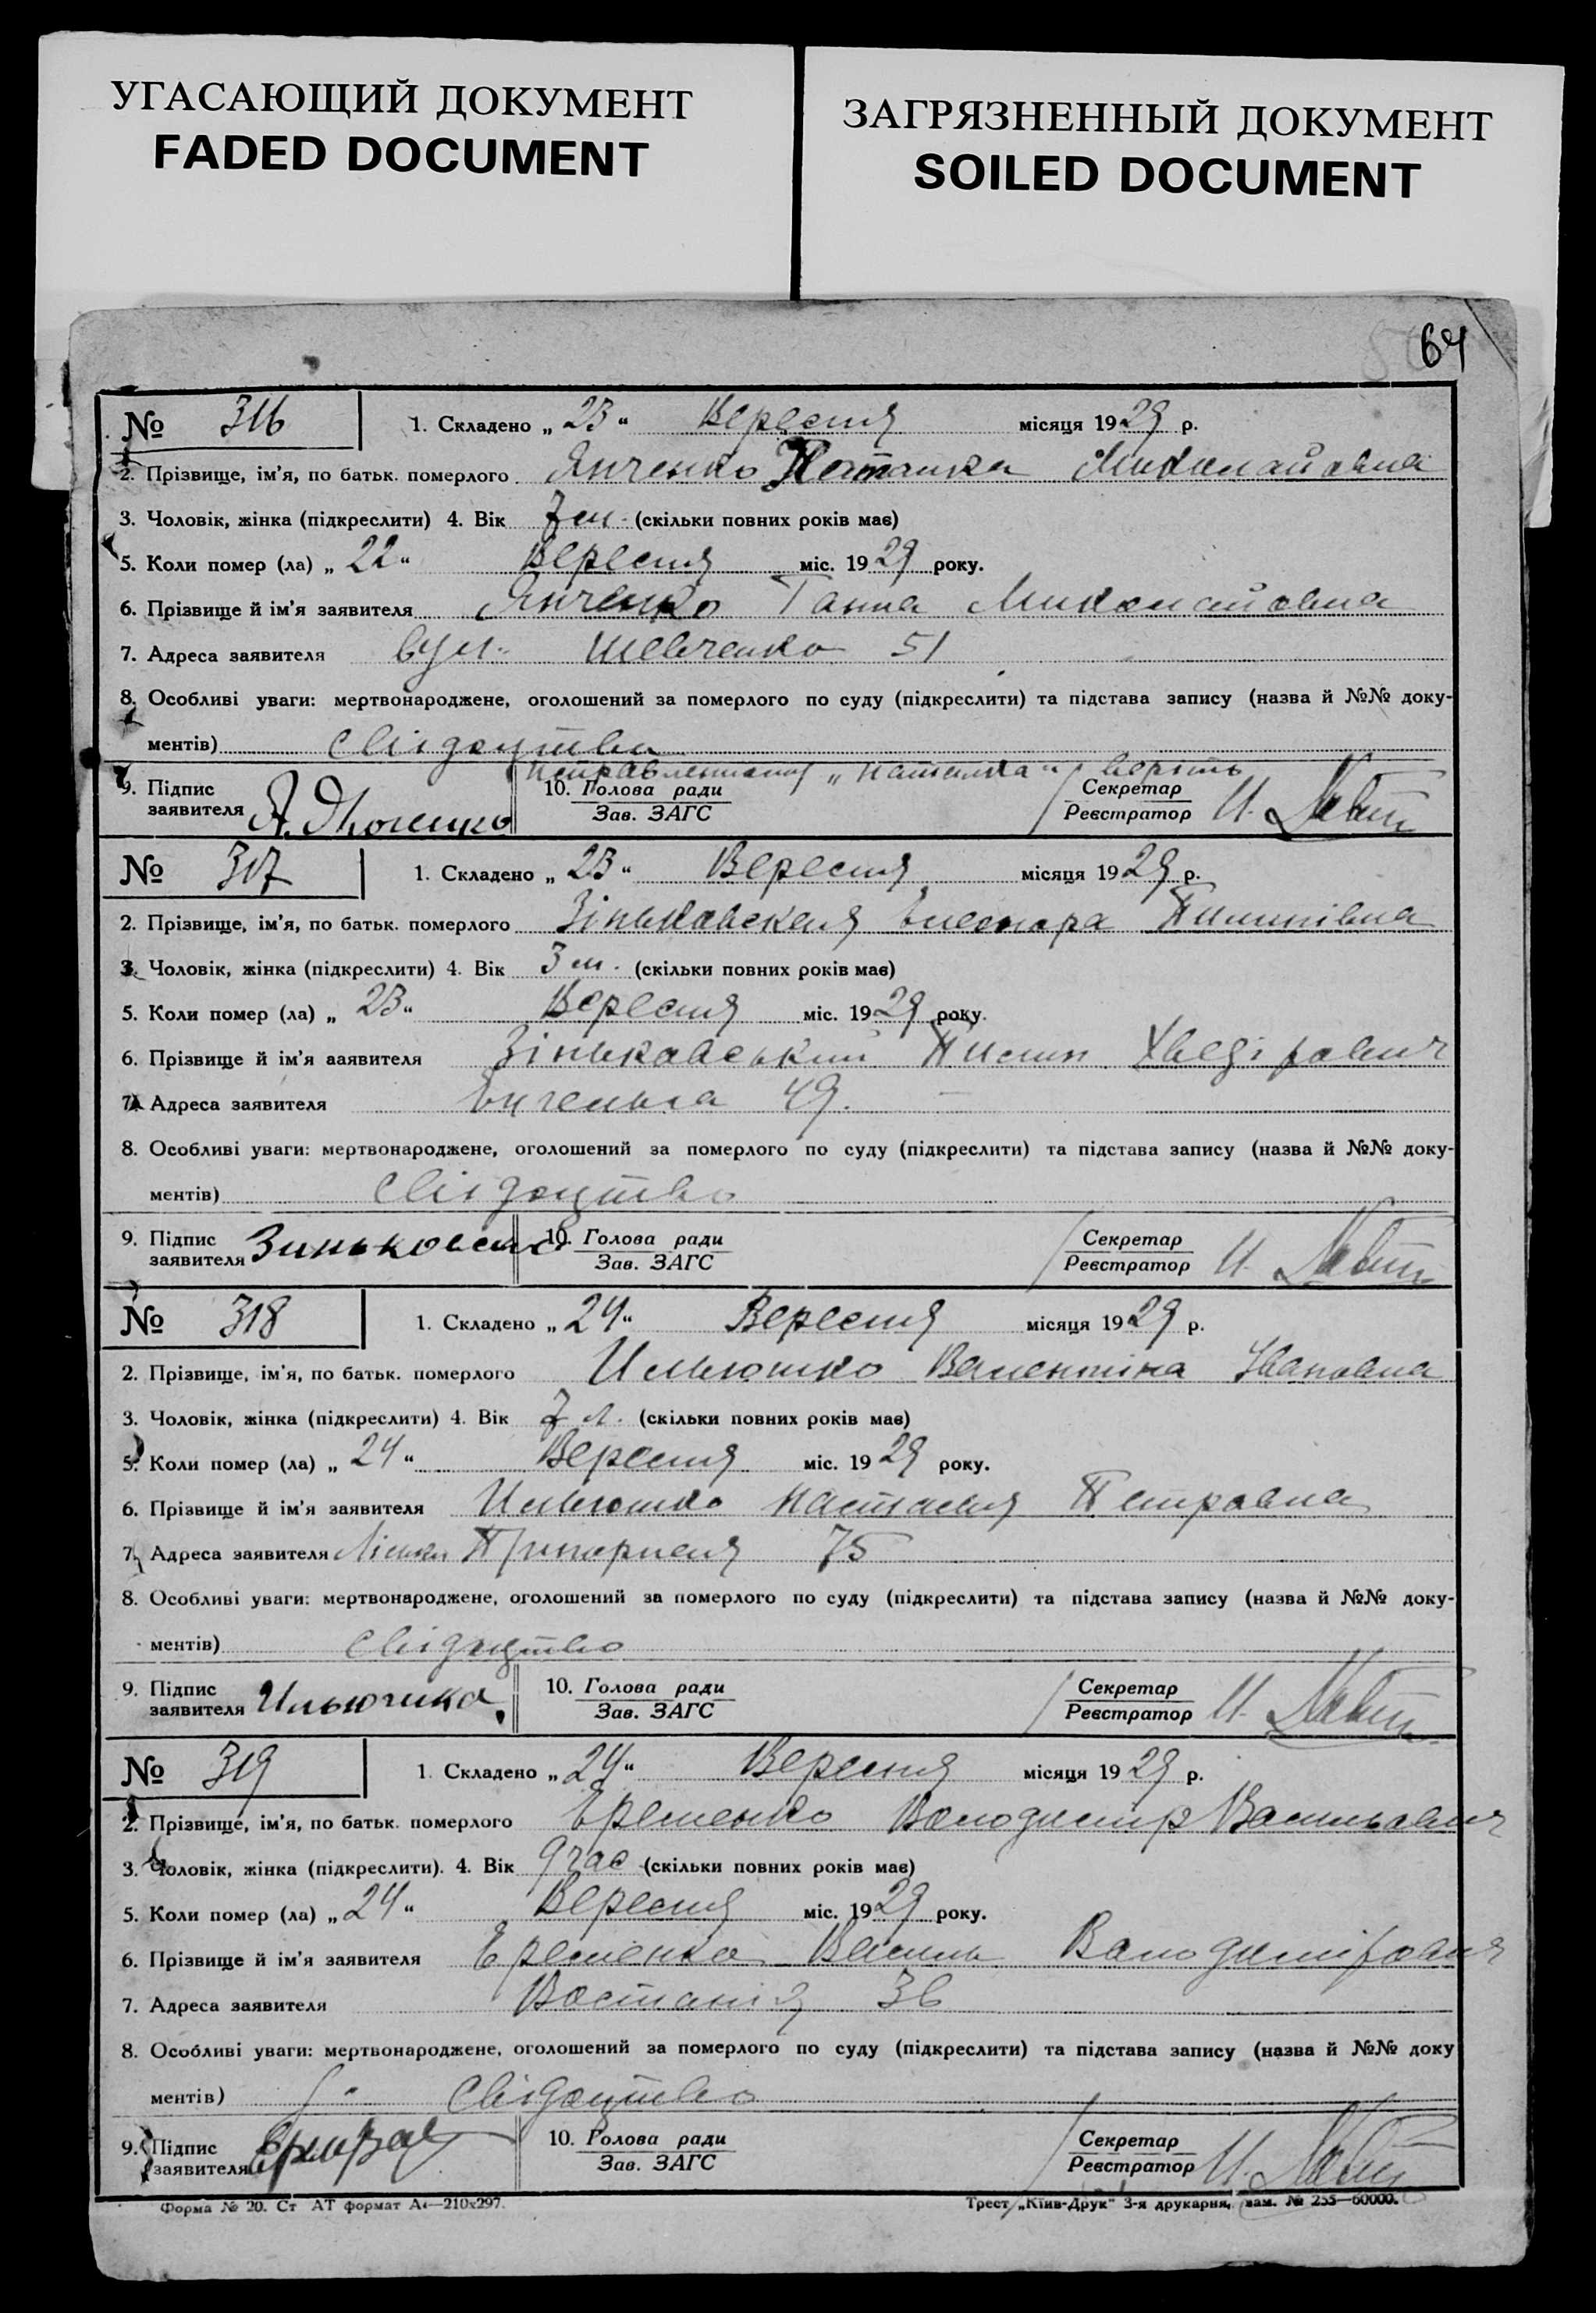 УГАСАЮЩИЙ ДОКУМЕНТ
FADED DOCUMENT
ЗАГРЯЗНЕННЫЙ ДОКУМЕНТ
SOILED DOCUMENT
64
№ 316 1. Складено „ 23 “ Вересня місяця 1929 р.
2. Прізвище, ім'я, по батьк. померлого Янченко Наталка Миколайовна
3. Чоловік, жінка (підкреслити) 4. Вік 7 м. (скільки повних років має)
5. Коли помер (ла) „ 22 “ Вересня міс. 1929 року.
6. Прізвище й ім'я заявителя Янченко Ганна Миколайовна
7. Адреса заявителя вул. Шевченко 51
8. Особливі уваги: мертвонароджене, оголошений за померлого по суду (підкреслити) та підстава запису (назва й №№ доку-
ментів) свідоцтво
Исправленному „Наталка“ верить
9. Підпис заявителя 10. Голова ради Зав. ЗАГС Секретар Реєстратор И.
№ 317 1. Складено „ 23 “ Вересня місяця 1929 р.
2. Прізвище, ім'я, по батьк. померлого Зіньковская Елеонора Пилипівна
3. Чоловік, жінка (підкреслити) 4. Вік 3 м. (скільки повних років має)
5. Коли помер (ла) „ 23 “ Вересня міс. 1929 року.
6. Прізвище й ім'я заявителя Зіньковський Пилип Хведірович
7. Адреса заявителя Енгельса 49.
8. Особливі уваги: мертвонароджене, оголошений за померлого по суду (підкреслити) та підстава запису (назва й №№ доку-
ментів) свідоцтво
9. Підпис заявителя 10. Голова ради Зав. ЗАГС Секретар Реєстратор И.
№ 318 1. Складено „ 24 “ Вересня місяця 1929 р.
2. Прізвище, ім'я, по батьк. померлого Ильюшко Валентіна Івановна
3. Чоловік, жінка (підкреслити) 4. Вік 7 л. (скільки повних років має)
5. Коли помер (ла) „ 24 “ Вересня міс. 1929 року.
6. Прізвище й ім'я заявителя Ильюшко Настасия Петровна
7. Адреса заявителя 75
8. Особливі уваги: мертвонароджене, оголошений за померлого по суду (підкреслити) та підстава запису (назва й №№ доку-
ментів) свідоцтво
9. Підпис заявителя 10. Голова ради Зав. ЗАГС Секретар Реєстратор И.
№ 319 1. Складено „ 24 “ Вересня місяця 1929 р.
2. Прізвище, ім'я, по батьк. померлого Еременко Володимір Васильович
3. Чоловік, жінка (підкреслити). 4. Вік 9 час (скільки повних років має)
5. Коли помер (ла) „ 24 “ Вересня міс. 1929 року.
6. Прізвище й ім'я заявителя Еременко Василь Володимірович
7. Адреса заявителя Востания 36
8. Особливі уваги: мертвонароджене, оголошений за померлого по суду (підкреслити) та підстава запису (назва й №№ доку
ментів) свідоцтво
9. Підпис заявителя 10. Голова ради Зав. ЗАГС Секретар Реєстратор И.
Форма № 20. Ст АТ формат А4—210х297. Трест „Київ-Друк“ 3-я друкарня, зам. № 255—60000.